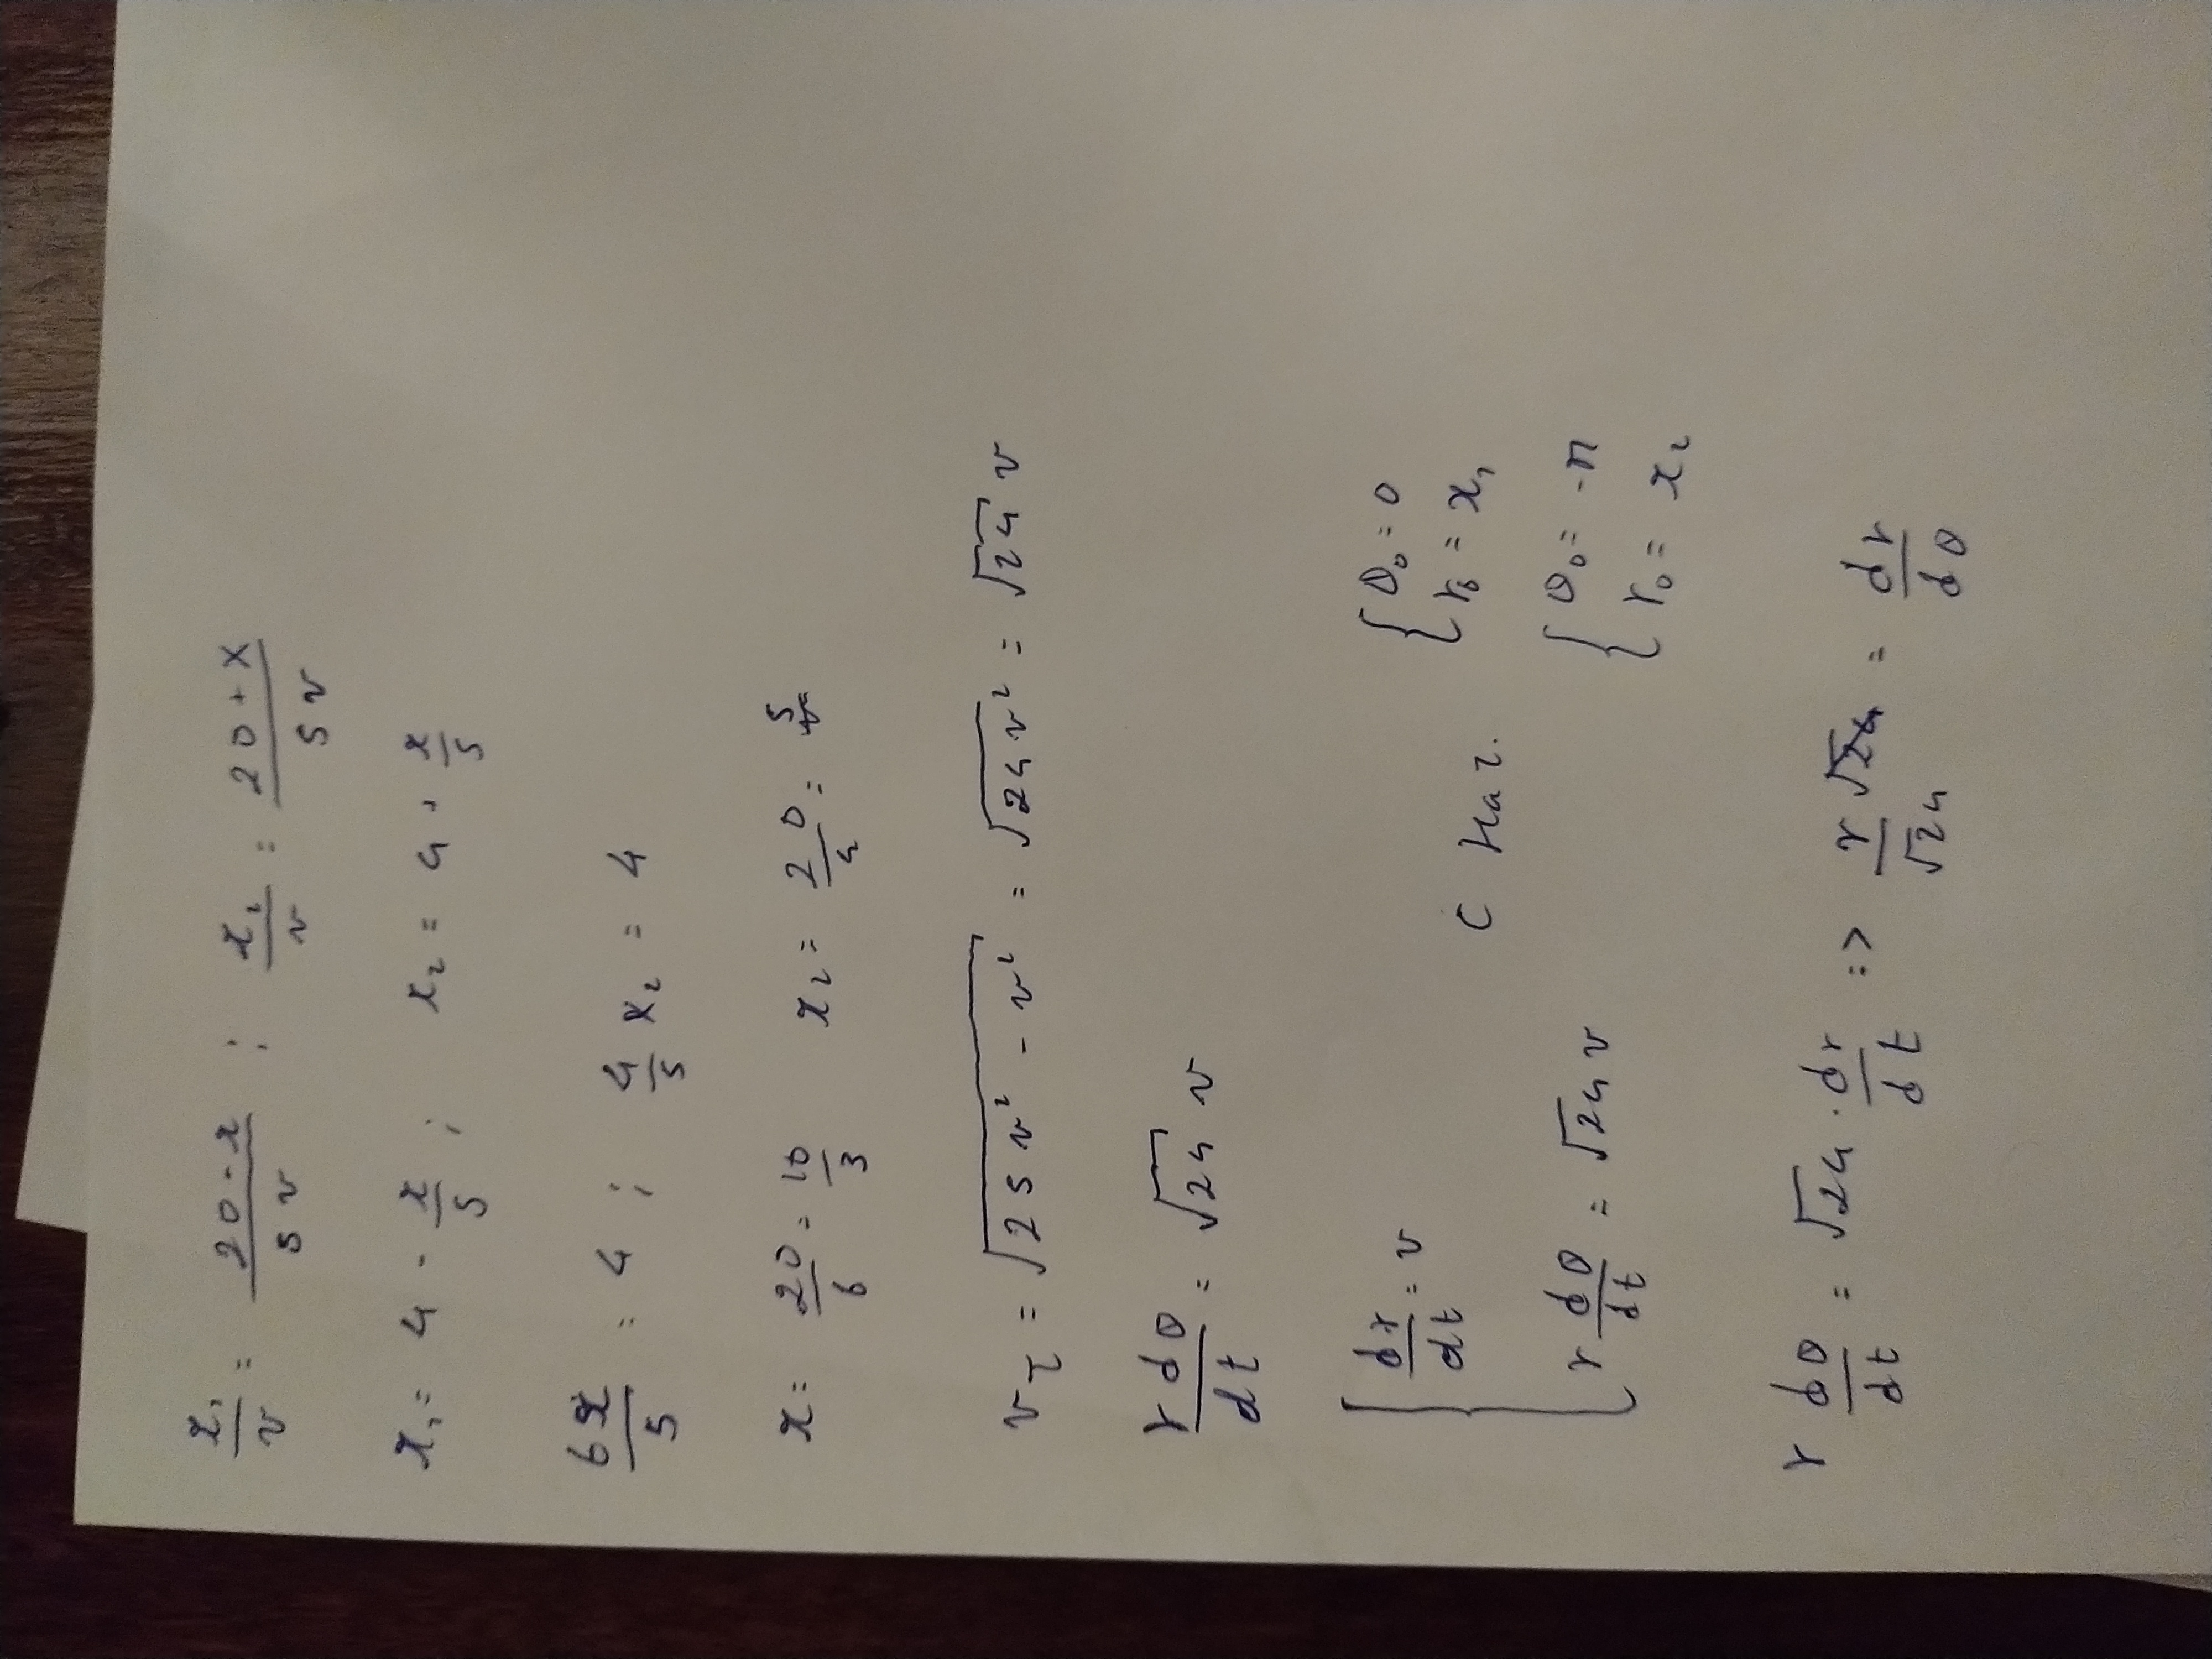 x₁/v = (20 - x)/(5v) ; x₂/v = (20 + x)/(5v)
x₁ = 4 - x/5 ; x₂ = 4 + x/5
6x/5 = 4 ; 4/5 x₂ = 4
x = 20/6 = 10/3 x₂ = 20/4 = 5
v_τ = √(25v² - v²) = √(24v²) = √24 v
r dθ/dt = √24 v
{ dr/dt = v
r dθ/dt = √24 v
с нач.
{ θ₀ = 0
r₀ = x₁
{ θ₀ = -π
r₀ = x₂
r dθ/dt = √24 · dr/dt => r/√24 = dr/dθ